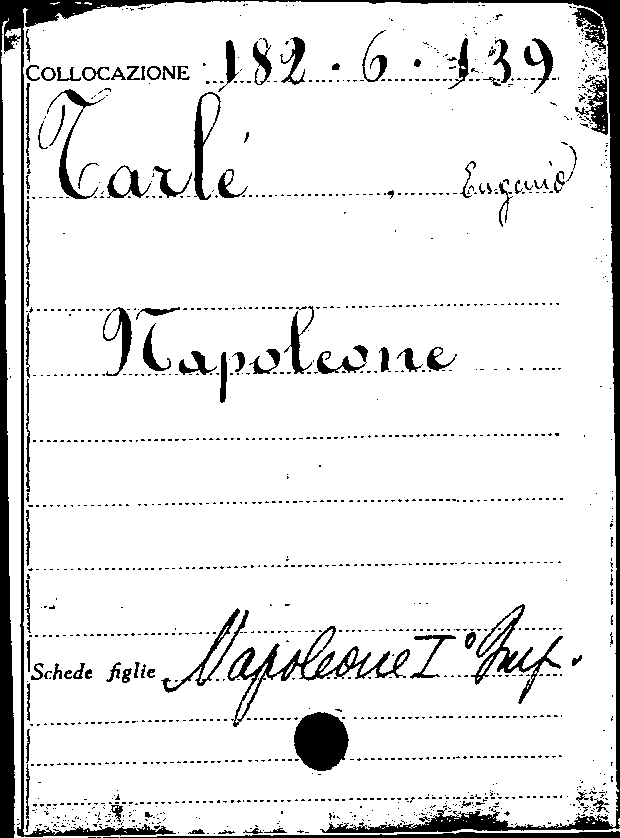 COLLOCAZIONE 182 . 6 . 139
Tarlé , Eugenio
Napoleone
Schede figlie Napoleone I° Imp.